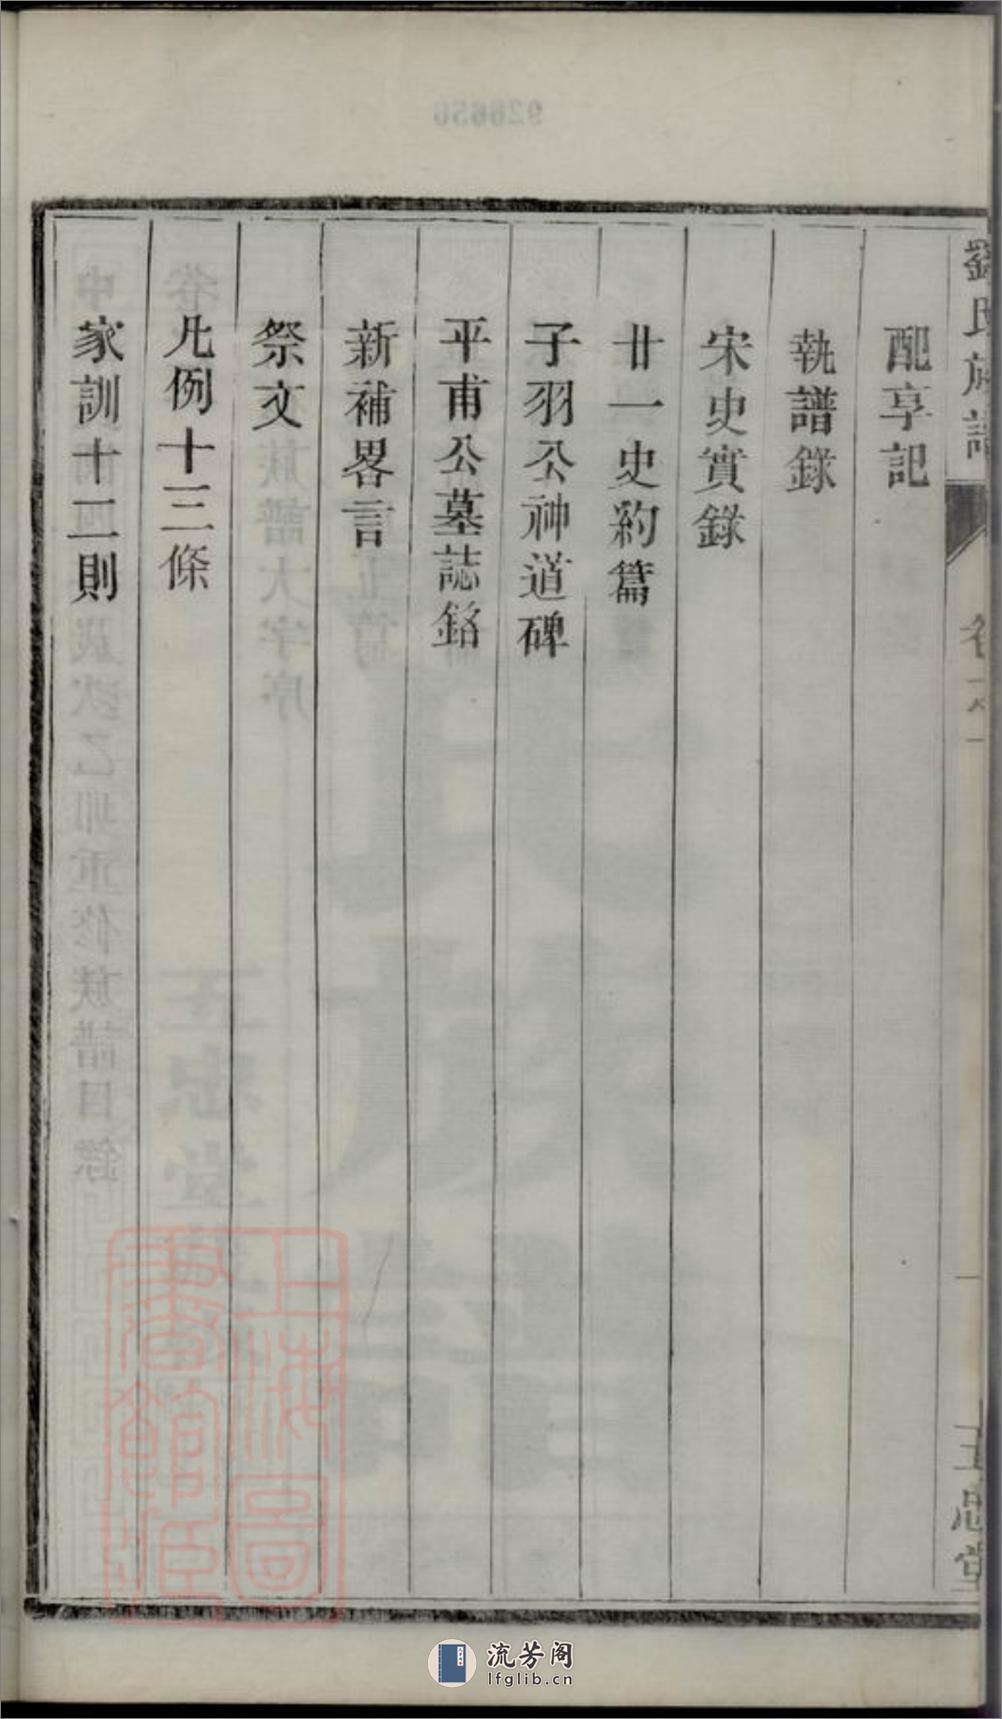 劉氏族譜
卷之一
一
五忠堂
配享記
執譜錄
宋史實錄
廿一史約篇
子羽公神道碑
平甫公墓誌銘
新補畧言
祭文
凡例十三條
家訓十二則
上海圖書館藏
流芳阁
lfglib.cn